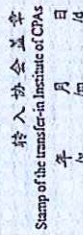 转入协会盖章
Stamp of the transfer-in Institute of CPAs
年 月 日
/y /m /d